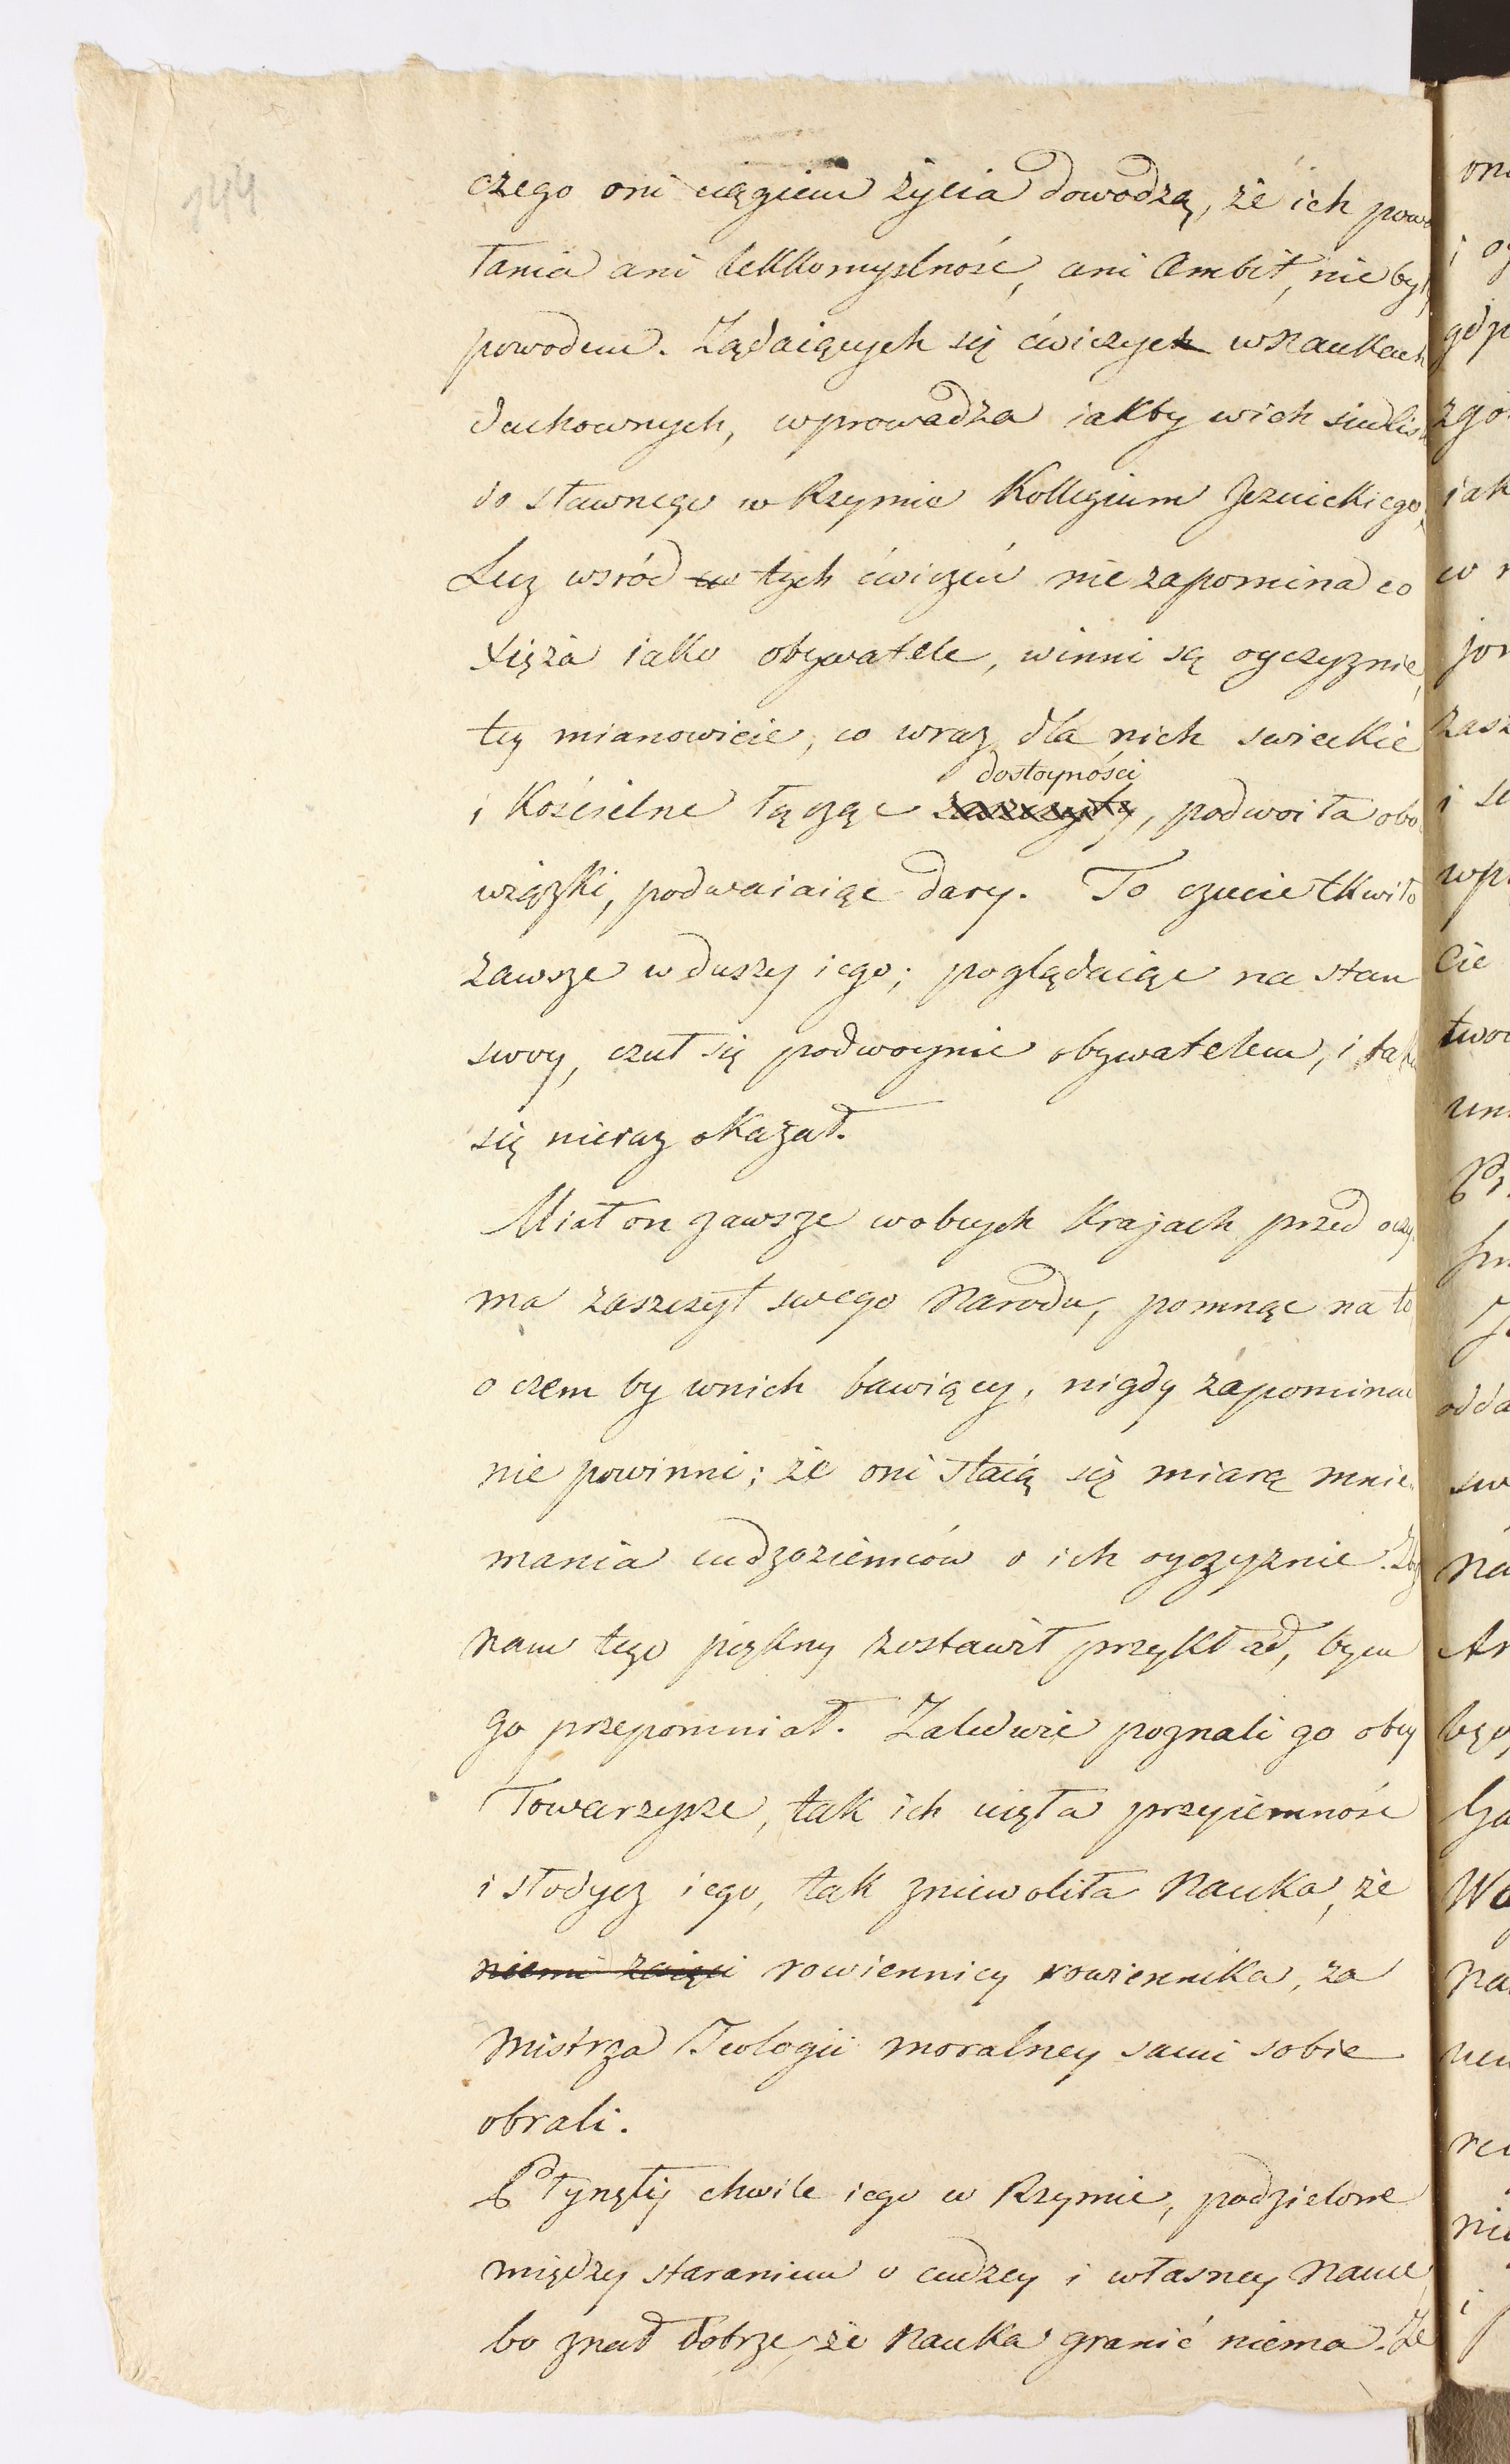 144
czego oni ciągiem życia dowodzą, że ich powo
łania ani lekkomyslność, ani Ambit, nie były
powodem. Żądaiących się ćwiczyć w Naukach
duchownych, wprowadza iakby w ich siedlisk
do sławnego w Rzymie Kollegium Jezuickiego,
Lecz wsród w tych ćwiczeń nie zapomina co
xięża iako obywatele, winni są oyczyznie,
tey mianowicie, co wraz dla nich swieckie
dostoyności
i Kościelne łącząc zaszczyty, podwoiła obo
wiązki, podwaiaiąc dary. To czucie tkwiło
zawsze w duszy iego; poglądaiąc na stan
swoy, czuł się podwoynie obywatelem, i takim
się nieraz okazał.
Miał on zawsze w obcych Krajach przed oczy
ma zaszczyt swego Narodu, pomnąc na to
o czem by w nich bawiący, nigdy zapominać
nie powinni; że oni staią się miarą mnie
mania cudzoziemców o ich oyczyznie.
nam tego piękny zostawił przykład, bym
go przepomniał. Zaledwie poznali go obcy
Towarzysze, tak ich uięła przyiemność
i słodycz iego, tak zniewoliła Nauka, że
rowiennicy rowiennika, za
Mistrza Teologii moralney sami sobie
obrali.
Płynęły chwile iego w Rzymie, podzielone
między staraniem o cudzey i własney Nauce
bo znał dobrze, że Nauka granic niema. Że